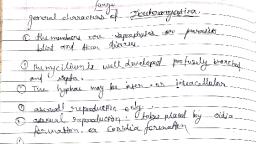 fungi
general characters of Deuteromycotina.
① The members are saprophytes or parasites
and cause diseases.
② The mycelium is well developed profusely branched
and septa.
③ The hyphae may be inter or intracellular.
④ asexual reproduction only.
⑤ asexual reproduction takes placed by oidia
formation or conidia formation